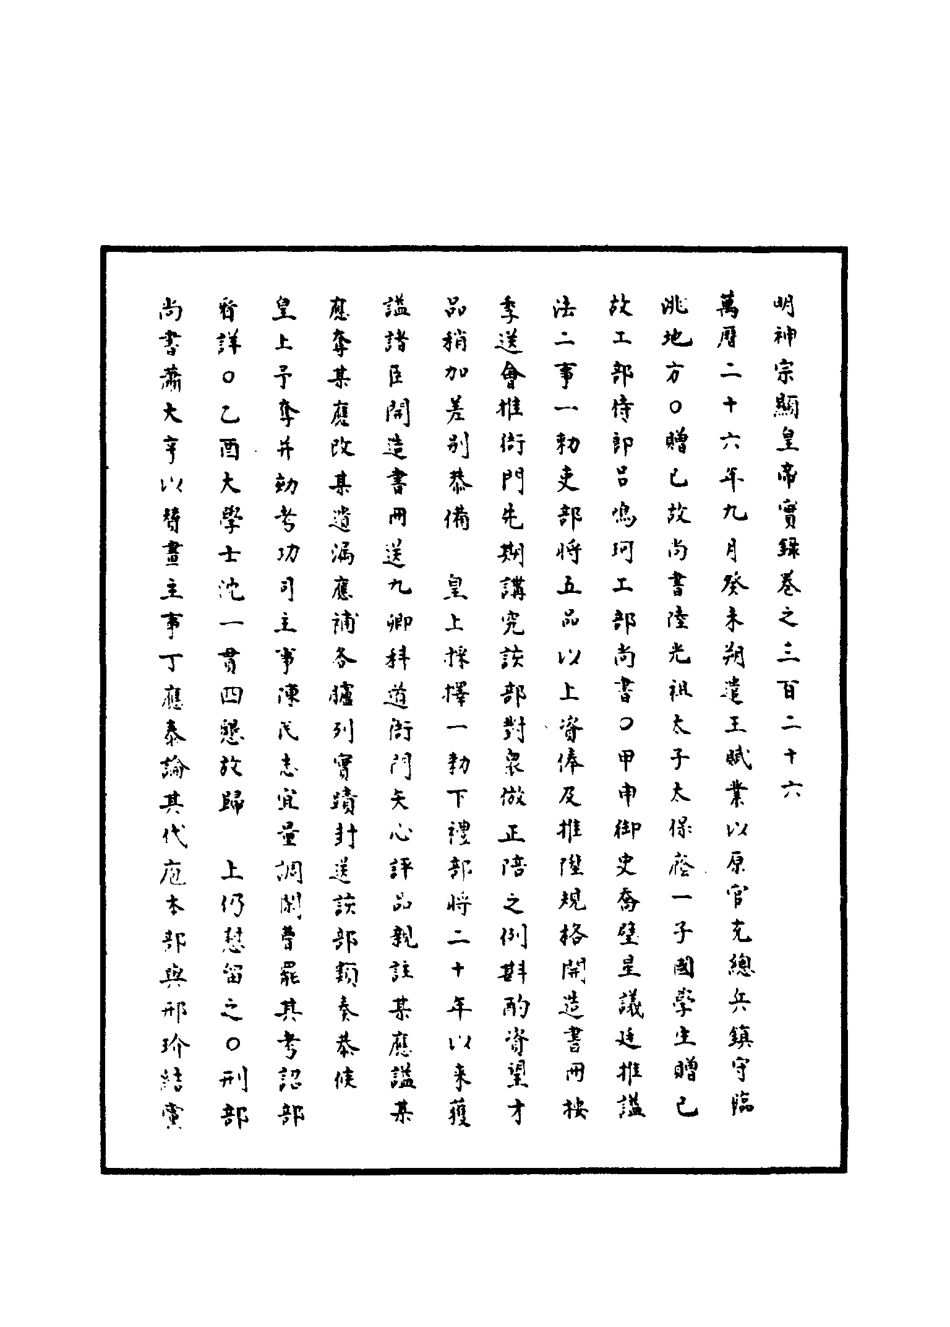 明神宗顯皇帝實錄卷之三百二十六
萬曆二十六年九月癸未朔遣王賦業以原官充總兵鎮守臨
洮地方○贈已故尚書陸光祖太子太保廕一子國學生贈已
故工部侍郎呂鳴珂工部尚書○甲申御史喬璧星議廷推謚
法二事一勑吏部將五品以上資俸及推陞規格開造書冊按
季送會推衙門先期講究該部對衆倣正陪之例斟酌資望才
品稍加差別恭備　皇上採擇一勑下禮部將二十年以來獲
謚諸臣開造書冊送九卿科道衙門矢心評品親註某應謚某
應奪某應改某遺漏應補各臚列實蹟封送該部類奏恭候
皇上予奪并劾考功司主事陳民志宜量調閑曹罷其考認部
看詳○乙酉大學士沈一貫四懇放歸　上仍慰留之○刑部
尚書蕭大亨以贊畫主事丁應泰論其代庖本部與邢玠結黨